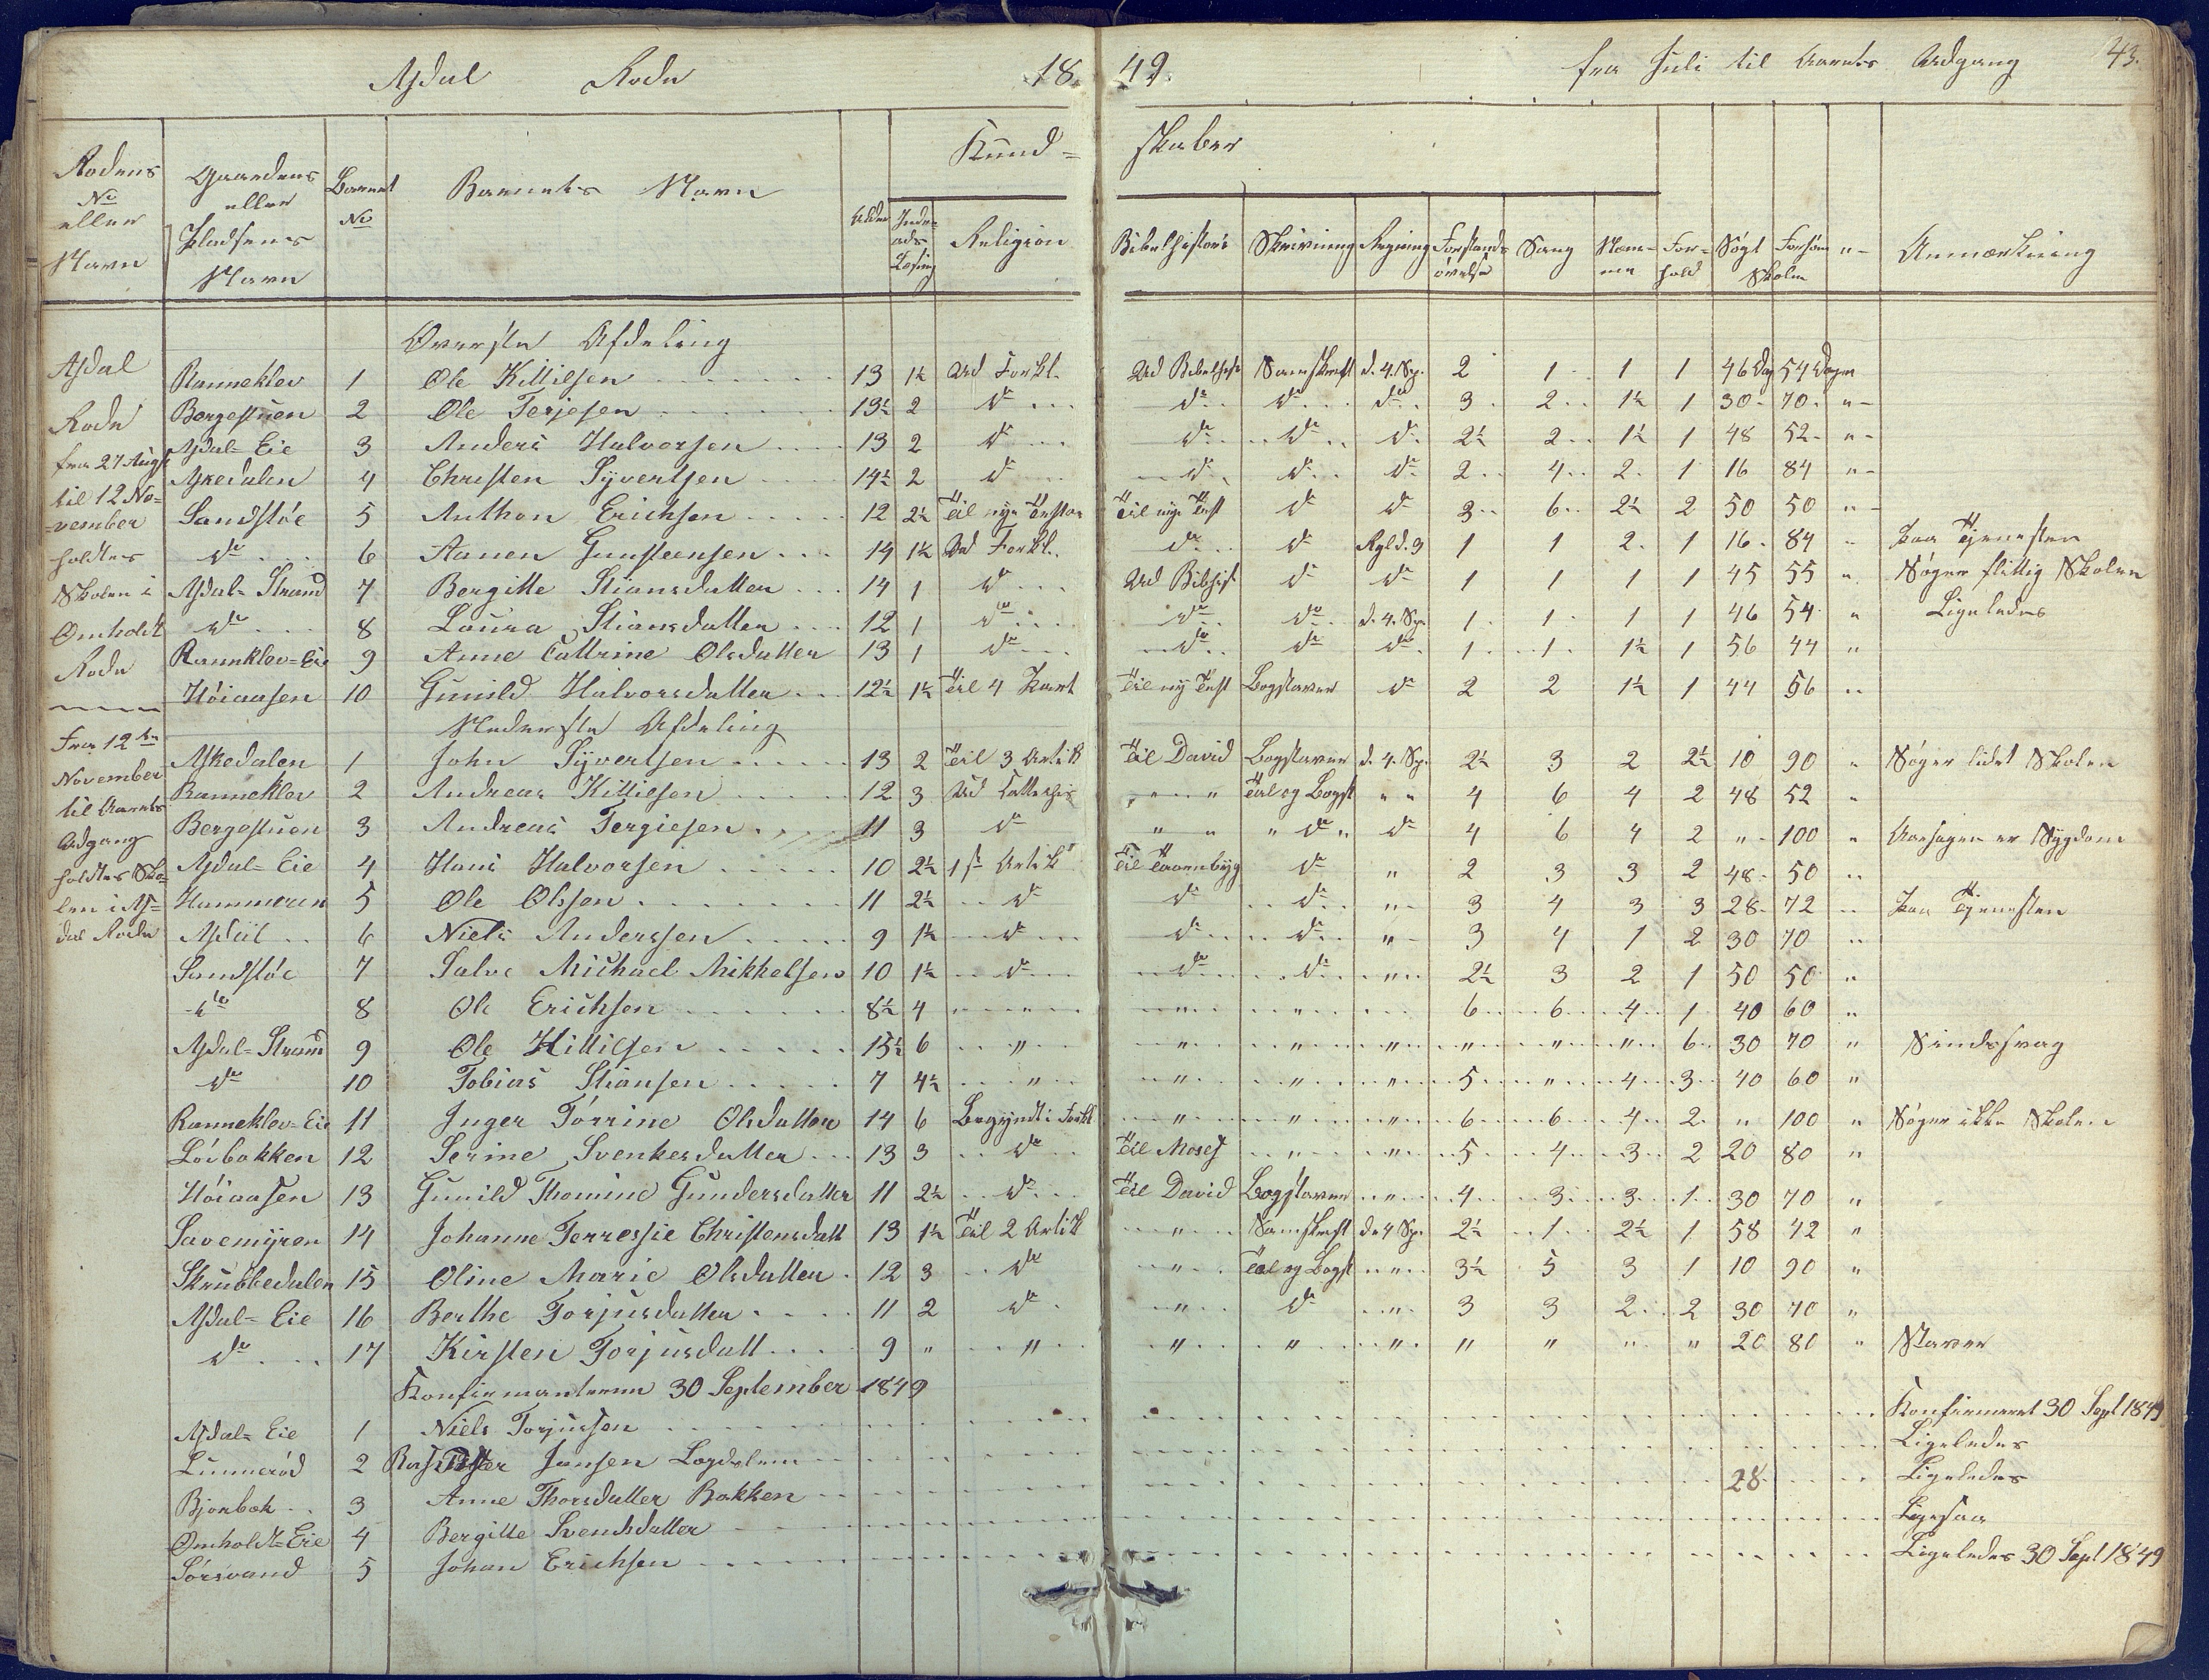 Asdal Rode 18 49. fra Juli til Aarets Udgang 43.
Rodens No eller Navn | Gaardens eller Pladsens Navn | Barnets No | Barnets Navn | Alder | Inden-ads Læsning | Kund- skaber
Religion | Bibelhistorie | Skrivning | Regning | Forstands øvelse | Sang | For- hold | Søgt Skolen | Forsømt | Anmærkning
Asdal Rode fra 27 Augst til 12 No- vember holdtes Skolen i Omholdt Rode
Fra 12te November til Aarets Udgang holdtes Sko- len i As- dal Rode
Øverste Afdeling
Ranneklev 1 Ole Killilsen 13 1½ Ud Forkl. Ud Bibelhist Samskrift d. 4. Sp. 2 1 1 1 46 Dag 54 Dagen
Borgestuen 2 Ole Terjesen 13½ 2 do do do do 3 2 1½ 1 30 70 "
Asdal-Eie 3 Anders Halvorsen 13 2 do do do do 2½ 2 1½ 1 48 52 "
Askedalen 4 Christen Syvertsen 14½ 2 do do do do 2 4 2 1 16 84 "
Sandstøe 5 Anthon Erichsen 12 2½ Til nye Testam Til nye Test do do 3 6 2½ 2 50 50 "
do 6 Aanen Gunsteensen 14 1½ Ud Forkl. do do Rgld. 3 1 1 2 1 16 84 " Paa Tjenesten
Asdal-Strand 7 Bergitte Stiansdatter 14 1 do Ud Bibhist do do 1 1 1 1 45 55 " Søger flittig Skolen
do 8 Laura Stiansdatter 12 1 do do do d. 4. Sp. 1 1 1 1 46 54 " Ligeledes
Ranneklev-Eie 9 Anne Cattrine Olsdatter 13 1 do do do do 1 1 1½ 1 56 44 "
Høiaasen 10 Gunild Halvorsdatter 12½ 1½ Til 4 Part Til ny Test Bogstaver do 2 2 1½ 1 44 56 "
Nederste Afdeling
Askedalen 1 John Syvertsen 13 2 Til 3 Artik Til David Bogstaver d. 4. Sp. 2½ 3 2 2½ 10 90 " Søger lidet Skolen
Ranneklev 2 Andreas Killilsen 12 3 Ud " Tal og Bogst " 4 6 4 2 48 52 "
Bergestuen 3 Andreas Tergiesen 11 3 do " " do do 4 6 4 2 " 100 " Aarsagen er Sygdom
Asdal-Eie 4 Hans Halvorsen 10 2½ 1st Artik Til do " 2 3 3 2 48 50 "
Hammeren 5 Ole Olssen 11 2½ do do do " 3 4 3 3 28 72 " Paa Tjenesten
6 Niels Anderssen 9 1½ do do do " 3 4 1 2 30 70 "
Sandstøe 7 Salve Michael Mikkelsen 10 1½ do do do " 2½ 3 2 1 50 50 "
do 8 Ole Erichsen 8½ 4 " " " 6 6 4 1 40 60 "
Asdal-Strand 9 Ole Killilsen 15½ 6 " " " " " " " 6 30 70 " Sindssvag
do 10 Tobias Stiansen 7 4½ " " " " 5 " 4 3 40 60 "
Ranneklev-Eie 11 Inger Tørrine Olsdatter 14 6 Begyndt i Forkl " " " 6 6 4 2 " 100 " Søger ikke Skolen
Løvbakken 12 Serine Svenkesdatter 13 3 do Til Moses " " 5 4 3 2 20 80 "
Høiaasen 13 Gunild Thomine Gundersdatter 11 2½ do Til David Bogstaver " 4 3 3 1 30 70 "
Savemyren 14 Johanne Terressie Christensdatt 13 1½ Til 2 Artik " Samskrift d. 4 Sp. 2½ 1 2½ 1 58 42 "
Skrubbedalen 15 Oline Marie Olsdatter 12 3 do " Tal og Bogst " 3½ 5 3 1 10 90 "
Asdal-Eie 16 Berthe Torjusdatter 11 2 do " do " 3 3 2 2 30 70 "
do 17 Kirsten Torjusdatt 9 " " " " " " " " " 20 80 " Staver
Konfirmanterne 30 September 1849
Asdal-Eie 1 Niels Torjussen Konfirmeret 30 Sept 1849
Lunnerød 2 Jansen Ligeledes
Bjonbæk 3 Anne Thorsdatter Bakken 28 Ligeledes
Omholdt-Eie 4 Bergitte Svendsdatter Ligesaa
Sørsvand 5 Johan Erichsen Ligeledes 30 Sept 1849